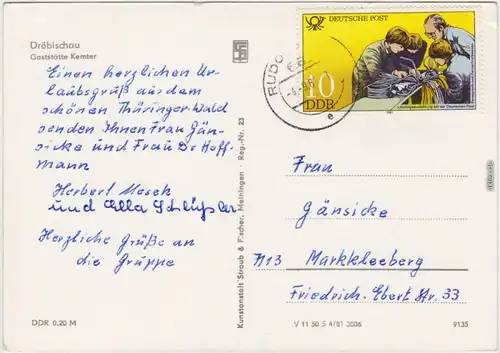 Dröbischau
Gaststätte Kemter
Einen herzlichen Ur-
laubsgruß aus dem
schönen Thüringer Wald
senden Ihnen Frau Gän-
sicke und Frau Dr Hoff-
mann
Herbert
und Ella
Herzliche Grüße an
die Gruppe
DDR 0,20 M
Kunstanstalt Straub & Fischer, Meiningen - Reg.-Nr. 23
DEUTSCHE POST
10
DDR
RUDO
e
Frau
Gänsicke
7113 Markkleeberg
Friedrich-Ebert Str. 33
V 11 50 S 4/81 3006
9135